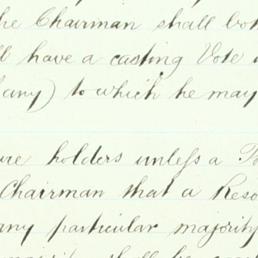 he Chairman shall bo
ll have a casting Vote
any) to which he may
are holders unless a Po
Chairman that a Reso
any particular majority